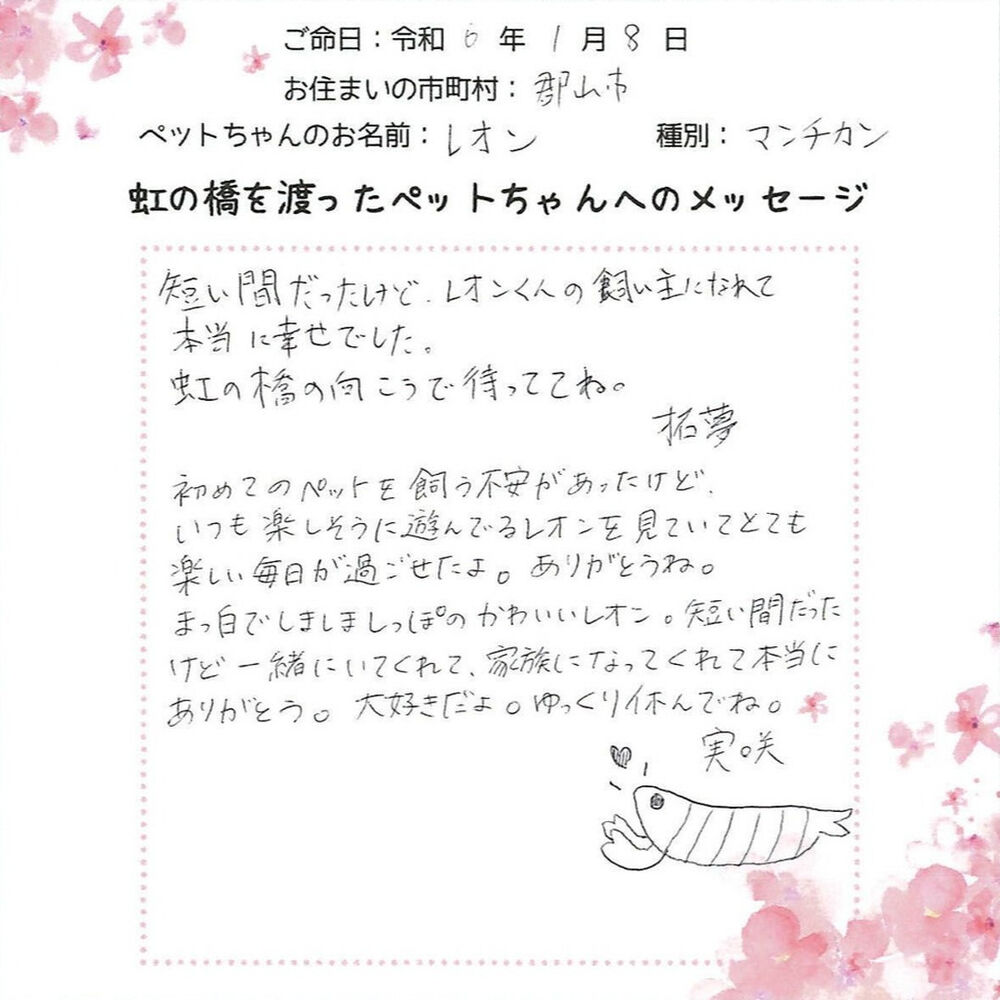 ご命日：令和 6 年 1 月 8 日
お住まいの市町村：郡山市
ペットちゃんのお名前：レオン 種別：マンチカン
虹の橋を渡ったペットちゃんへのメッセージ
短い間だったけど、レオンくんの飼い主になれて
本当に幸せでした。
虹の橋の向こうで待っててね。
拓夢
初めてのペットを飼う不安があったけど、
いつも楽しそうに遊んでるレオンを見ていてとても
楽しい毎日が過ごせたよ。ありがとうね。
まっ白でしましましっぽのかわいいレオン。短い間だった
けど一緒にいてくれて、家族になってくれて本当に
ありがとう。大好きだよ。ゆっくり休んでね。
実咲